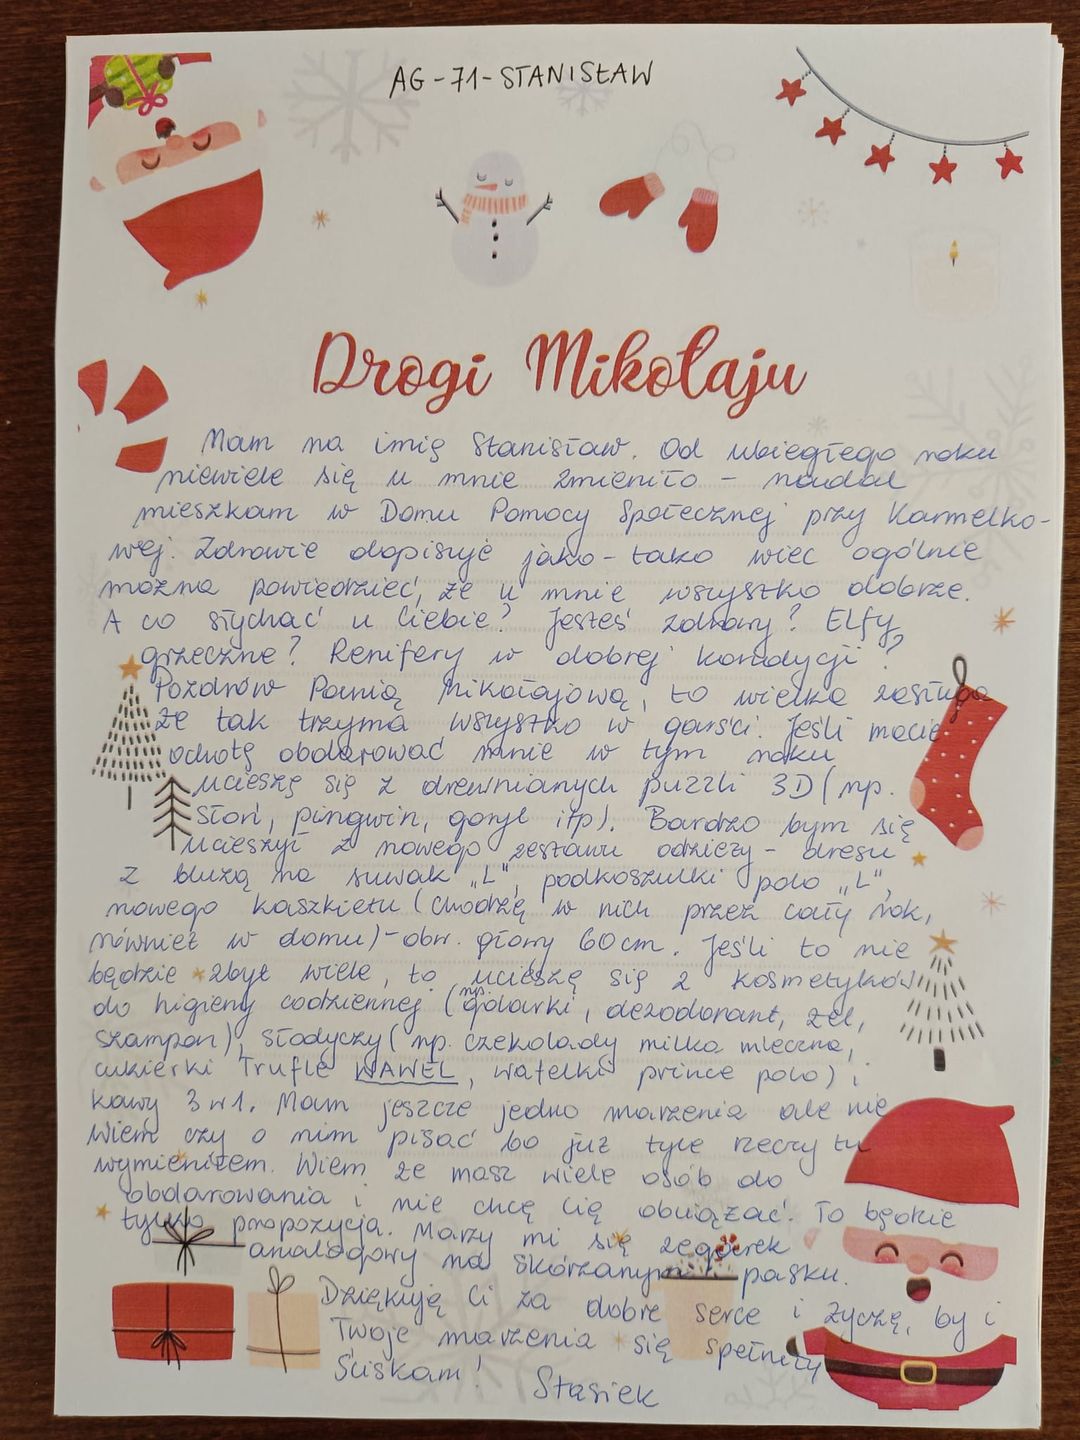 AG-71-STANISŁAW
Drogi Mikołaju
Mam na imię Stanisław. Od ubiegłego roku
niewiele się u mnie zmieniło - nadal
mieszkam w Domu Pomocy Społecznej przy Karmelko-
wej. Zdrowie dopisuje jako-tako więc ogólnie
można powiedzieć, że u mnie wszystko dobrze.
A co słychać u Ciebie? Jesteś zdrowy? Elfy
grzeczne? Renifery w dobrej kondycji?
Pozdrów Panią Mikołajową, to wielka zasługa
że tak trzyma wszystko w garści. Jeśli macie
ochotę obdarować mnie w tym roku
ucieszę się z drewnianych puzzli 3D (np.
słoń, pingwin, goryl itp). Bardzo bym się
ucieszył z nowego zestawu odzieży - dresu
z bluzą na suwak „L", podkoszulki polo „L",
nowego kaszkietu (chodzę w nich przez cały rok,
również w domu) - obw. głowy 60 cm. Jeśli to nie
będzie zbyt wiele, to ucieszę się z kosmetyków
do higieny codziennej (np. golarki, dezodorant, żel,
szampon), słodyczy (np. czekolady milka mleczna,
cukierki Trufle WAWEL, wafelki prince polo) i
kawy 3w1. Mam jeszcze jedno marzenie ale nie
wiem czy o nim pisać bo już tyle rzeczy tu
wymieniłem. Wiem że masz wiele osób do
obdarowania i nie chcę Cię obciążać. To będzie
tylko propozycja. Marzy mi się zegarek
analogowy na skórzanym pasku.
Dziękuję Ci za dobre serce i życzę, by i
Twoje marzenia się spełniły
Ściskam!
Stasiek